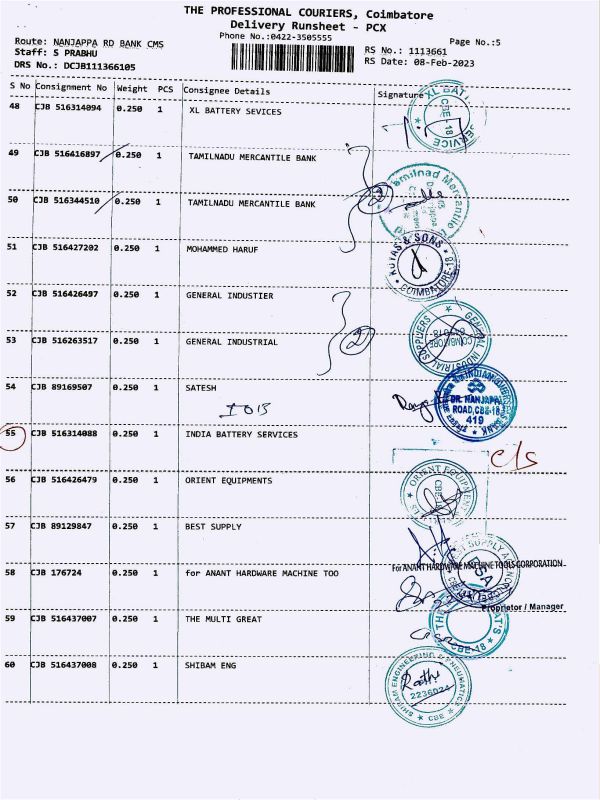 THE PROFESSIONAL COURIERS, Coimbatore
Delivery Runsheet - PCX
Phone No.:0422-3505555
Page No.:5
Route: NANJAPPA RD BANK CMS
RS No.: 1113661
Staff: S PRABHU
RS Date: 08-Feb-2023
DRS No.: DCJB111366105
S No Consignment No Weight PCS Consignee Details Signature
48 CJB 516314094 0.250 1 XL BATTERY SEVICES
XL BATT SERVICE CBE-18
49 CJB 516416897 0.250 1 TAMILNADU MERCANTILE BANK
50 CJB 516344510 0.250 1 TAMILNADU MERCANTILE BANK
2
amilnad Mercantile
51 CJB 516427202 0.250 1 MOHAMMED HARUF
& SONS COIMBATORE-18
52 CJB 516426497 0.250 1 GENERAL INDUSTIER
53 CJB 516263517 0.250 1 GENERAL INDUSTRIAL
2
GENERAL INDUSTRIAL SUPPLIERS COIMBATORE
54 CJB 89169507 0.250 1 SATESH
IOB
DR. NANJAPPA
ROAD,CBE-18
419
55 CJB 516314088 0.250 1 INDIA BATTERY SERVICES
C/S
56 CJB 516426479 0.250 1 ORIENT EQUIPMENTS
ORIENT EQUIPMENT
57 CJB 89129847 0.250 1 BEST SUPPLY
SUPPLY
BSA
58 CJB 176724 0.250 1 for ANANT HARDWARE MACHINE TOO
For ANANT HARDWARE MACHINE TOOLS CORPORATION
Proprietor / Manager
59 CJB 516437007 0.250 1 THE MULTI GREAT
CBE-18
60 CJB 516437008 0.250 1 SHIBAM ENG
SHIBAM ENGINEERING & PNEUMATICS
Rathi
2236024
CBE